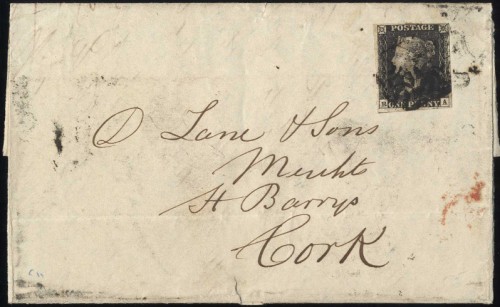 POSTAGE
H A
ONE PENNY
D Lane & Sons
Mercht
St Barrys
Cork